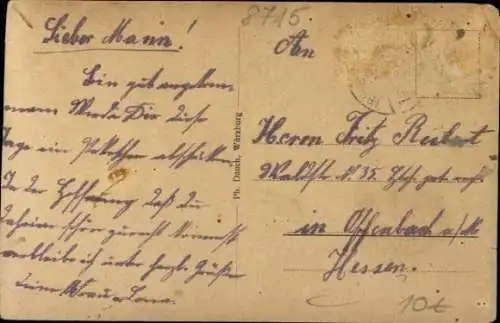 8715
Lieber Mann!
Bin gut angekom-
men Werde Dir diese
Tage ein Paketchen abschicken
In der Hoffnung daß Du
daheim schön zurecht kommst
verbleibe ich unter herzl. Grüße
Deine Frau u. Lona.
Ph. Dauch, Würzburg
An
Herrn Fritz Reibert
Waldstr N 35
in Offenbach a/M
Hessen.
10€